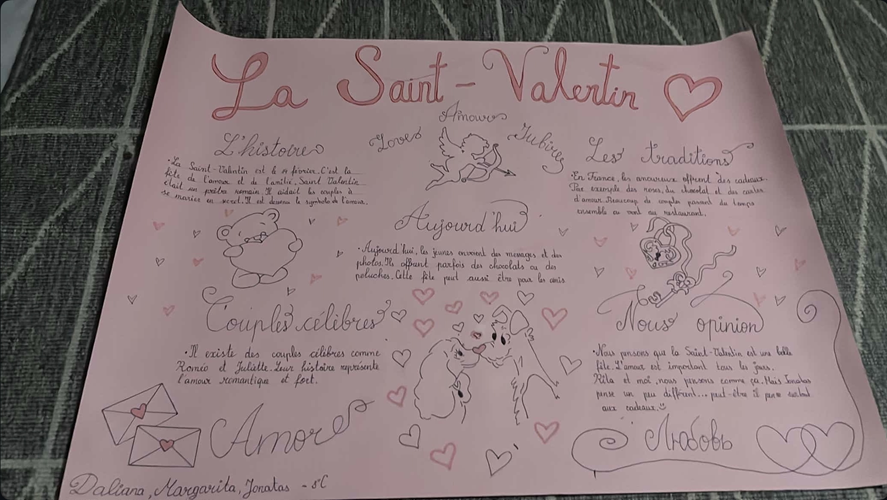 La Saint-Valentin
Amour
Love
Iubirea
L'histoire
• La Saint-Valentin est le 14 février. C'est la
fête de l'amour et de l'amitié. Saint Valentin
était un prêtre romain. Il aidait les couples à
se marier en secret. Il est devenu le symbole de l'amour.
Les traditions
• En France, les amoureux offrent des cadeaux.
Par exemple des roses, du chocolat et des cartes
d'amour. Beaucoup de couples passent du temps
ensemble au restaurant.
Aujourd'hui
• Aujourd'hui, les jeunes envoient des messages et des
photos. Ils offrent parfois des chocolats ou des
peluches. Cette fête peut aussi être pour les amis
Couples célèbres
• Il existe des couples célèbres comme
Roméo et Juliette. Leur histoire représente
l'amour romantique et fort.
Nous opinion
• Nous pensons que la Saint-Valentin est une belle
fête. L'amour est important tous les jours.
Rita et moi, nous pensons comme ça. Mais Jonatas
pense un peu différent... peut-être il pense surtout
aux cadeaux.
Amore
Любовь
Daliana, Margarita, Jonatas - 8°C